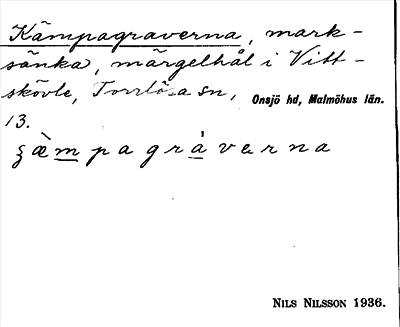 Kämpagraverna, mark-
sänka, märgelhål i Vitt-
skövle, Torrlösa sn, Onsjö hd, Malmöhus län.
13.
NILS NILSSON 1936.